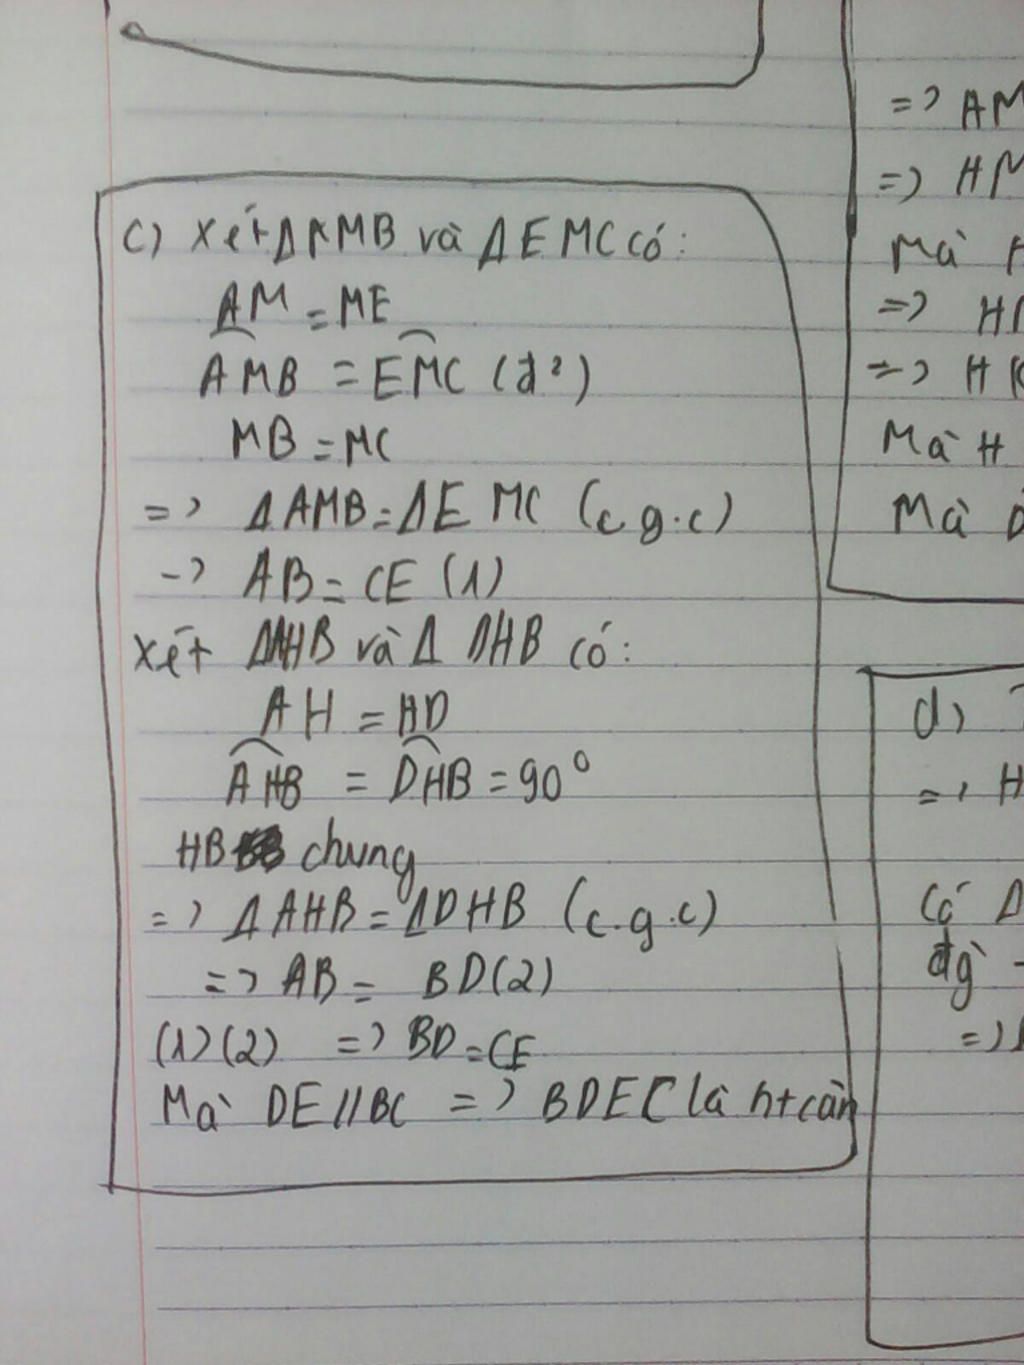 c) Xét ΔAMB và ΔEMC có:
AM = ME
AMB = EMC (đ²)
MB = MC
=> ΔAMB = ΔEMC (c.g.c)
-> AB = CE (1)
Xét ΔAHB và Δ DHB có:
AH = HD
AHB = DHB = 90°
HB chung
=> ΔAHB = ΔDHB (c.g.c)
=> AB = BD (2)
(1)(2) => BD = CE
Mà DE//BC => BDEC là ht cân
=> AM
=> HM
Mà
=> H
=> H
Mà H
Mà
d)
=> H
Có Δ
đg
=>